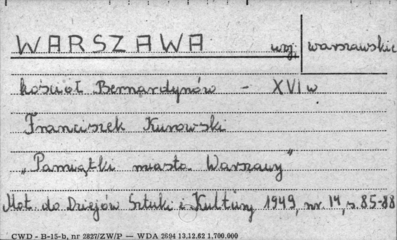 WARSZAWA woj. warszawskie
kościół Bernardynów - XVI w
Franciszek Kurowski
„Pamiątki miasta Warszawy"
Mat. do Dziejów Sztuki i Kultury 1949, nr. 14, s. 85-88
CWD - B-15-b, nr 2827/ZW/P — WDA 2694 13.12.52 1,700.000